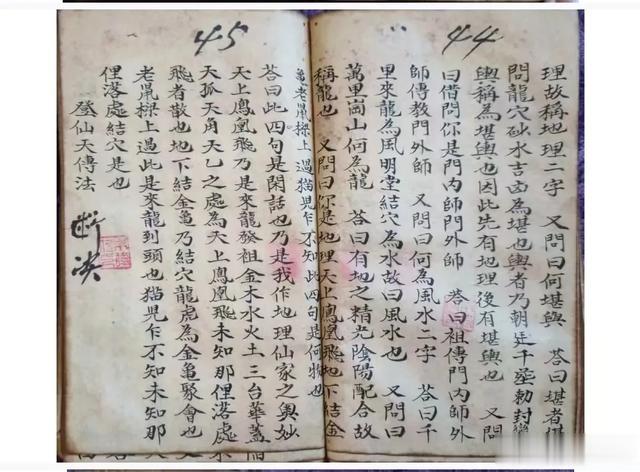 44
理故稱地理二字 又問曰何堪輿 答曰堪者堪
問龍穴砂水吉凶為堪也輿者乃朝廷千丞勅封
輿稱為堪輿也因此先有地理後有堪輿也 又問
曰借問你是門内師門外師 答曰祖傳門内師外
師傳教門外師 又問曰何為風水二字 答曰千
里來龍為風明堂結穴為水故曰風水也 又問曰
萬里崗山何為龍 答曰有地之精光陰陽配合故
稱龍也 又問曰你是地理天上鳳凰飛地下結金
45
龜老鼠樑上過猫児乍不知此四句是何物也
答曰此四句是閑話也乃是我作地理仙家之奧妙
天上鳳凰飛乃是來龍發祖金木水火土三台華蓋
天孤天角天乙之處為天上鳳凰飛未知那俚落處不
飛者散也地下結金龜乃結穴龍虎為金龜聚會也
老鼠樑上過此是來龍到頭也猫児乍不知未知那
俚落處結穴是也
登仙天傳法
断决